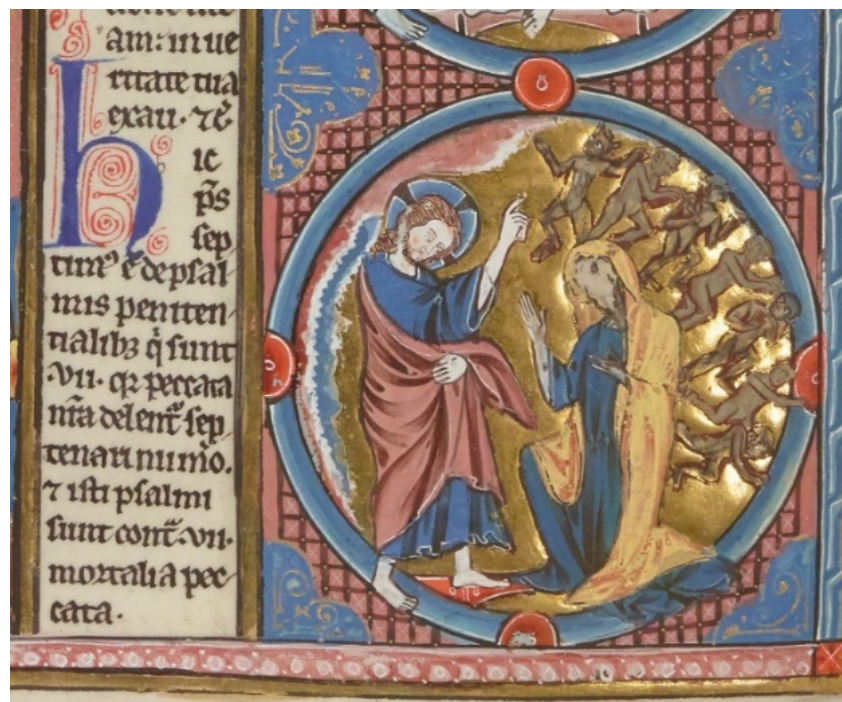 am: in ue
ritate tua
exau· ⁊c̄
hic
p̄s
sep
tim⁹ ē de psal
mis peniten
tialibꝫ q̄ sunt
·vii· qꝛ peccata
nr̄a delent᷑ sep
tenari numo.
⁊ isti psalmi
sunt cont᷑ ·vii·
mortalia pec
cata·